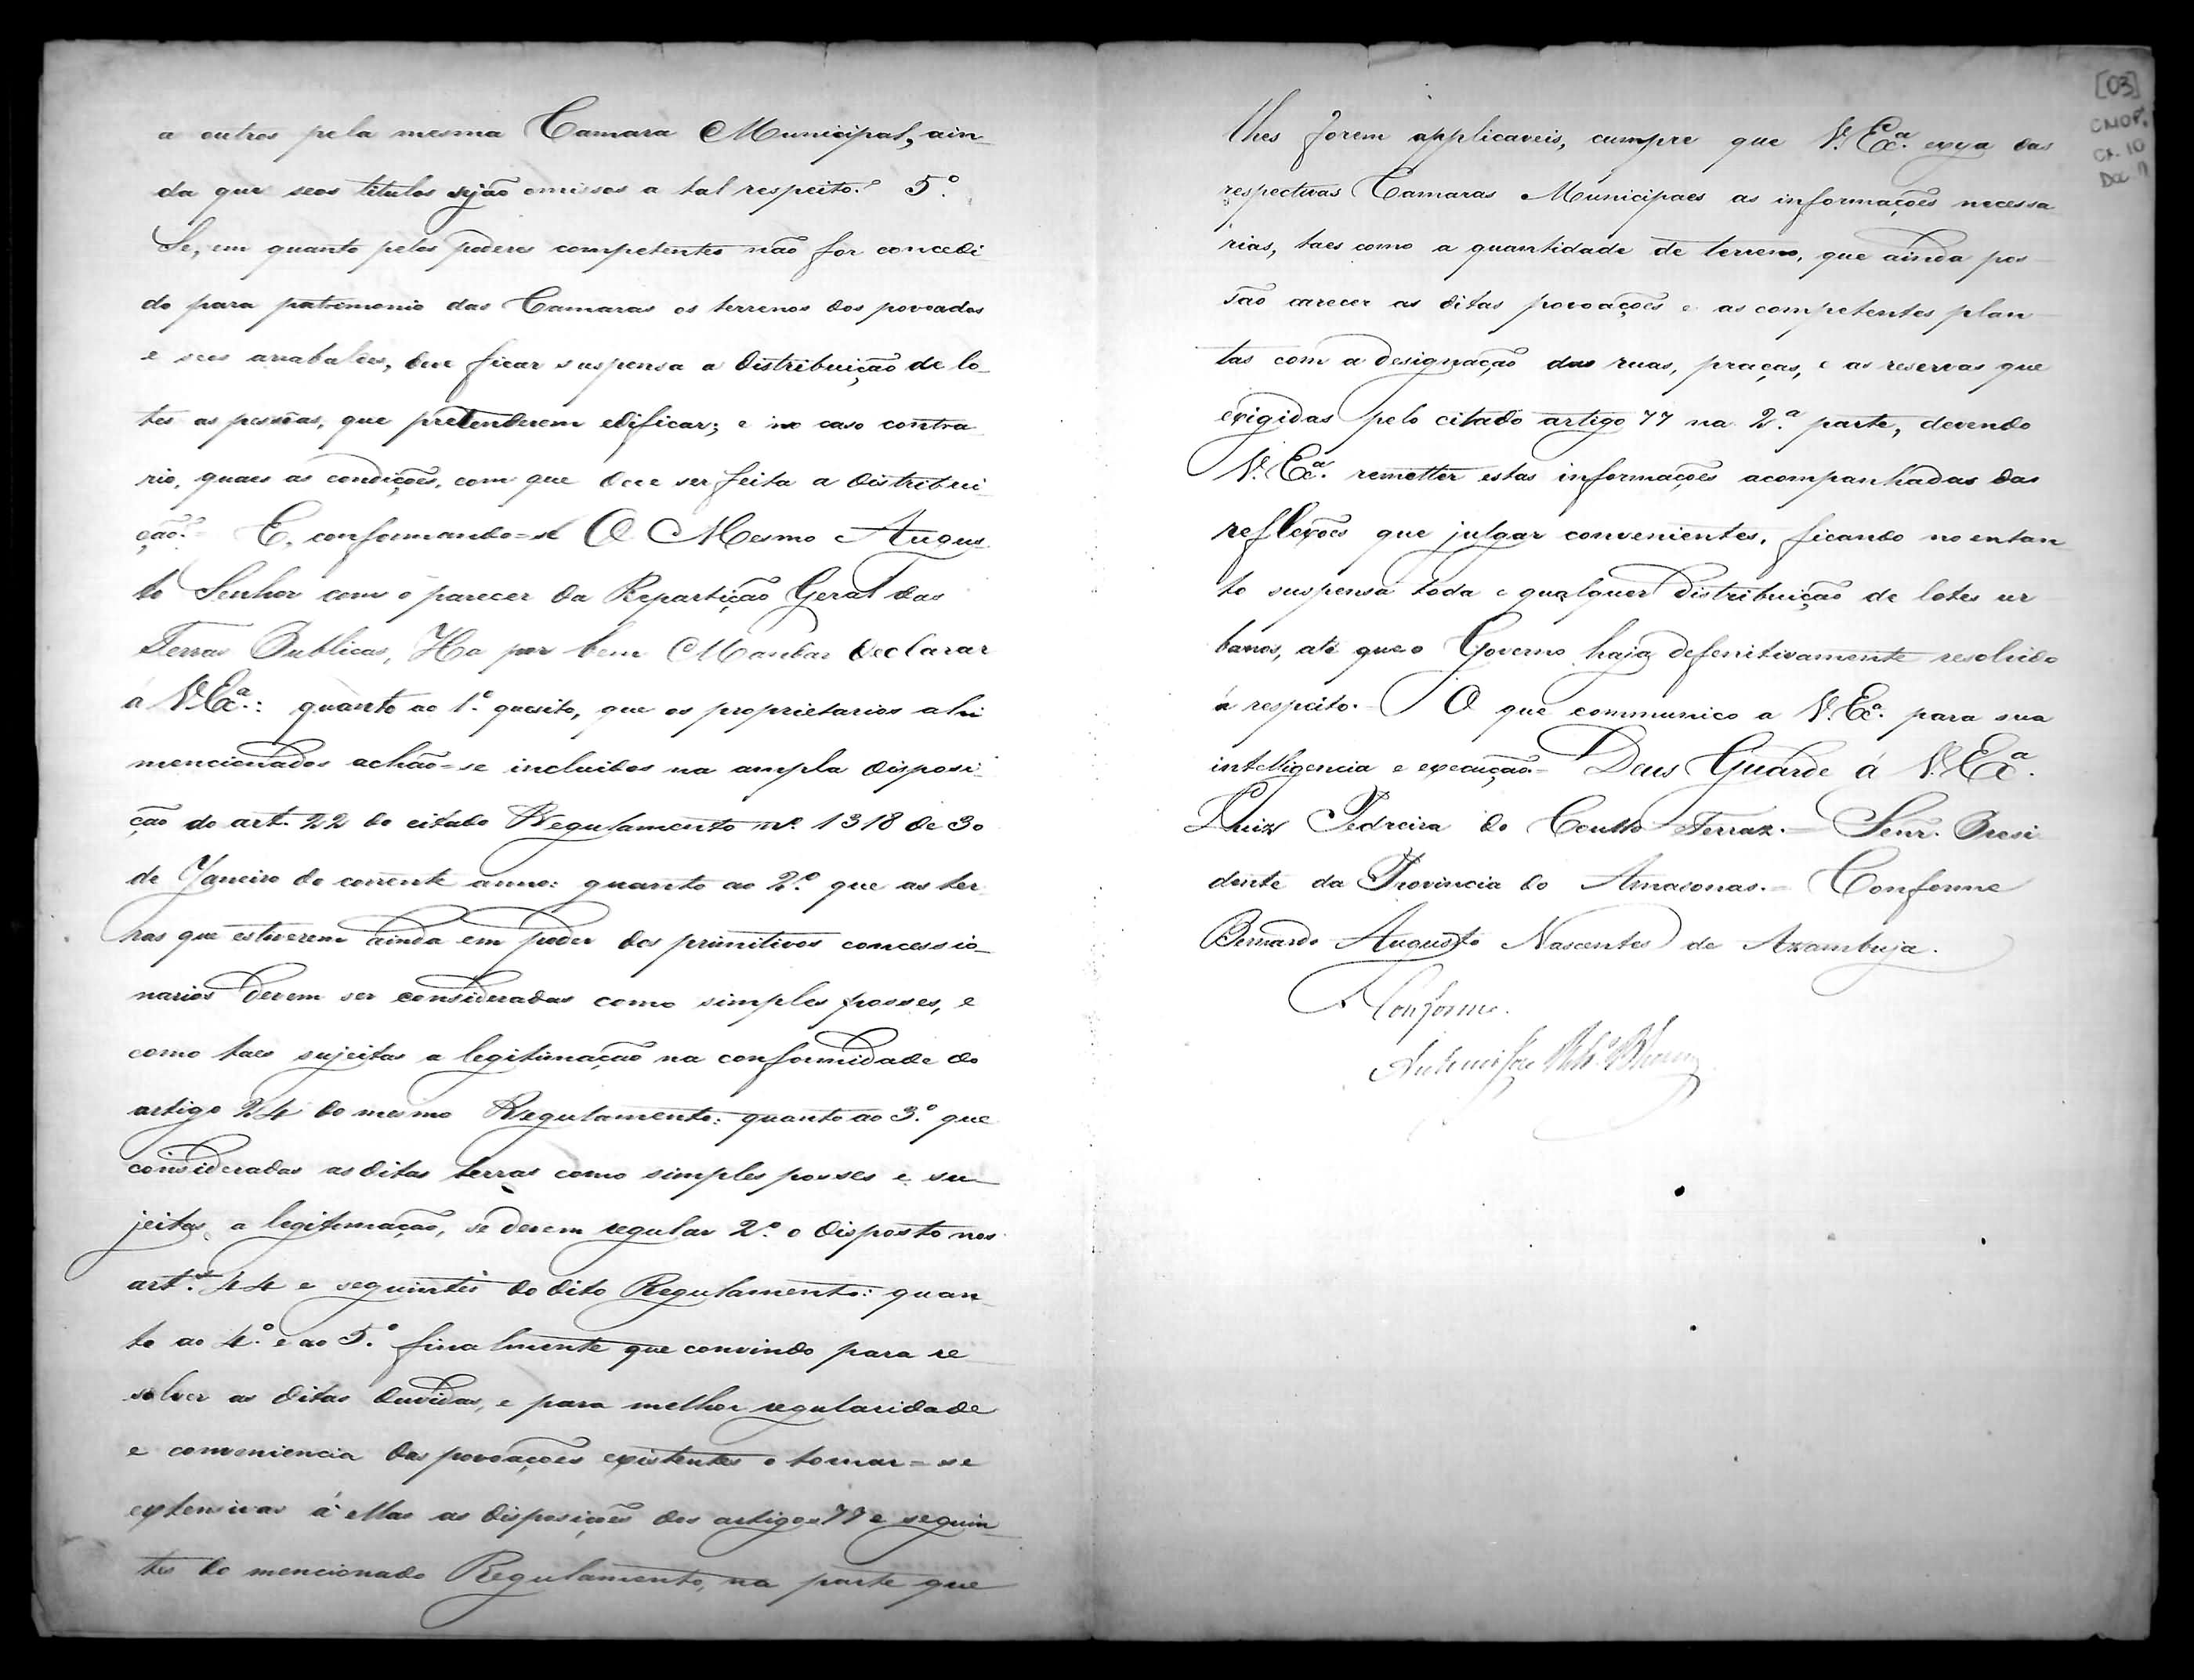 a outros pela mesma Camara Municipal, ain-
da que seos titulos sejão omissos a tal respeito? 5.º
Se, em quanto pelos poderes competentes não for concedi
do para patrimonio das Camaras os terrenos dos povoados
e seos arrabaldes, deve ficar suspensa a distribuição de lo-
tes as pessôas, que pretenderem edificar; e no caso contra
rio, quaes as condições, com que deve ser feita a distribui
ção? E, conformando=se O Mesmo Augus
to Senhor com o parecer da Repartição Geral das
Terras Publicas, Ha por bem Mandar declarar
á V. Exª.: quanto ao 1.º quesito, que os proprietarios ahi
mencionados achão=se incluidos na ampla disposi
ção do art. 22 do citado Regulamento nº. 1318 de 30
de Janeiro do corrente anno: quanto ao 2.º que as ter
ras que estiverem ainda em poder dos primitivos concessio-
narios devem ser consideradas como simples posses, e
como taes sujeitas a legitimação na conformidade do
artigo 24 do mesmo Regulamento: quanto ao 3.º que
consideradas as ditas terras como simples posses e su-
jeitas a legitimação, se devem regular 2.º o disposto nos
art.ºˢ 44 e seguintes do dito Regulamento: quan-
to ao 4.º e ao 5.º finalmente que convindo para re
solver as ditas duvidas, e para melhor regularidade
e conveniencia das povoações existentes o tornar=se
extensivas á ellas as disposições dos artigos 77 e seguin
tes do mencionado Regulamento, na parte que
lhes forem applicaveis, cumpre que V. Exª. exija das
respectivas Camaras Municipaes as informações necessa
rias, taes como a quantidade de terreno, que ainda pos-
são carecer as ditas povoações e as competentes plan-
tas com a designação das ruas, praças, e as reservas que
exigidas pelo citado artigo 77 na 2.ª parte, devendo
V. Exª. remetter estas informações acompanhadas das
reflexões que julgar convenientes, ficando no entan
to suspensa toda e qualquer distribuição de lotes ur
banos, até que o Governo haja defenitivamente resolvido
á respeito. O que communico a V. Exª. para sua
intelligencia e execução.= Deus Guarde á V. Exª.
Luiz Pedreira do Coutto Ferraz.= Senr. Presi
dente da Provincia do Amazonas.= Conforme
Bernardo Augusto Nascentes de Azambuja.
Conforme.
[03]
CX. 10